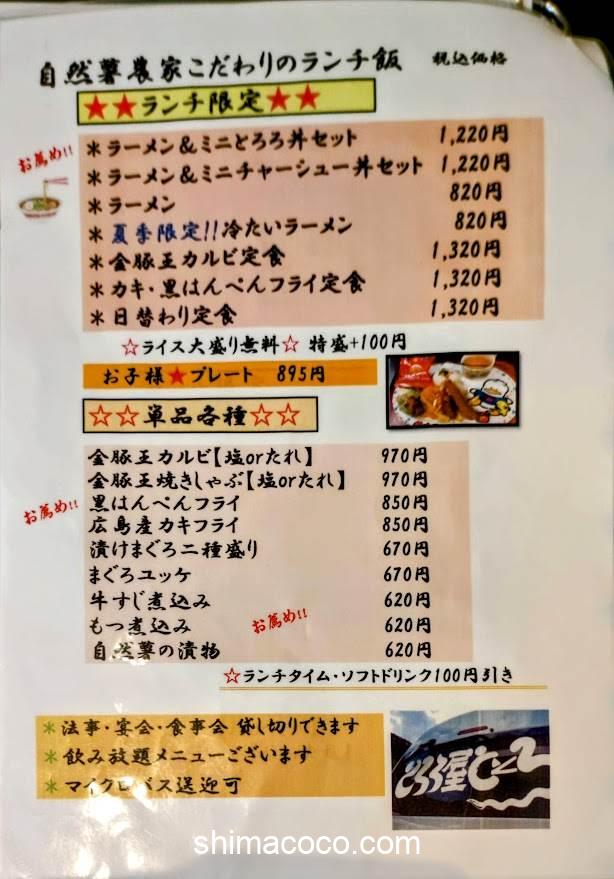 自然薯農家こだわりのランチ飯 税込価格
★★ランチ限定★★
お薦め!!
＊ラーメン＆ミニとろろ丼セット 1,220円
＊ラーメン＆ミニチャーシュー丼セット 1,220円
＊ラーメン 820円
＊夏季限定!!冷たいラーメン 820円
＊金豚王カルビ定食 1,320円
＊カキ・黒はんぺんフライ定食 1,320円
＊日替わり定食 1,320円
☆ライス大盛り無料☆ 特盛+100円
お子様★プレート 895円
☆☆単品各種☆☆
金豚王カルビ【塩orたれ】 970円
金豚王焼きしゃぶ【塩orたれ】 970円
お薦め!!
黒はんぺんフライ 850円
広島産カキフライ 850円
漬けまぐろ二種盛り 670円
まぐろユッケ 670円
牛すじ煮込み 620円
もつ煮込み お薦め!! 620円
自然薯の漬物 620円
☆ランチタイム・ソフトドリンク100円引き
＊法事・宴会・食事会 貸し切りできます
＊飲み放題メニューございます
＊マイクロバス送迎可
とろろ屋
shimacoco.com